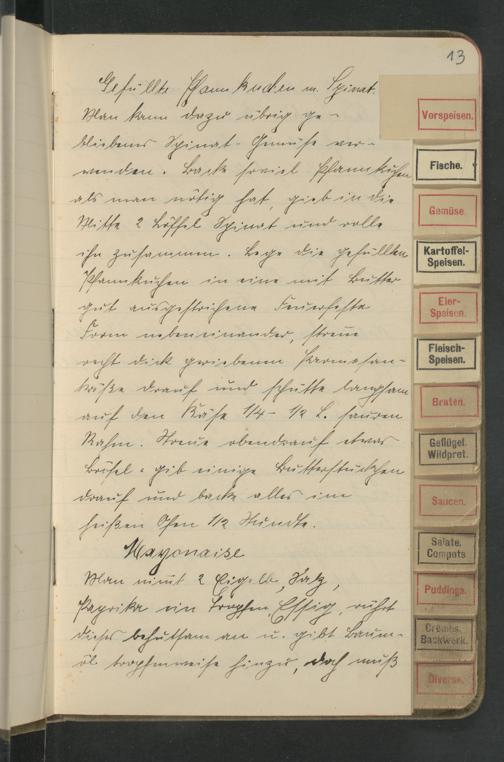 13
Gefüllte Pfannkuchen m. Spinat.
Man kann dazu übrig ge-
bliebenes Spinat-Gemüse ver-
wenden. Backe soviel Pfannkuchen
als man nötig hat, gieb in die
Mitte 2 Löffel Spinat und rolle
ihn zusammen. Lege die gefüllten
Pfannkuchen in eine mit Butter
gut ausgestrichene Feuerfeste
Form nebeneinander, streue
recht dick geriebenen Parmesan-
käse drauf und schütte langsam
auf den Käse 1/4 - 1/2 L. sauren
Rahm. Streue obendrauf etwas
Brösel, gib einige Butterstückchen
drauf und backe alles im
heißen Ofen 1/2 Stunde.
Mayonaise
Man nimt 2 Eigelb, Salz,
Paprika ein Tropfen Essig, rührt
dieses behutsam an u. gibt Baum-
öl tropfenweise hinzu, doch muß
Vorspeisen.
Fische.
Gemüse.
Kartoffel-
Speisen.
Eier-
Speisen.
Fleisch-
Speisen.
Braten.
Geflügel.
Wildpret.
Saucen.
Salate.
Compots
Puddings.
Crêmes.
Backwerk.
Diverse.